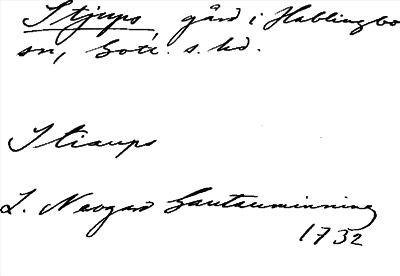 Stjups, gård i Hablingbo
sn, Gotl. s. hd.
Stiaups
L. Neogard Gautauminning
1732